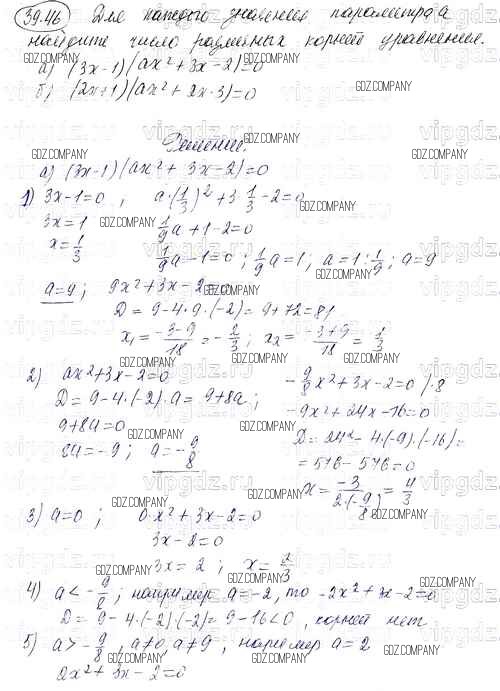 39.46 Для каждого значения параметра а
найдите число различных корней уравнения.
а) (3x-1)(ax²+3x-2)=0
б) (2x+1)(ax²+2x-3)=0
Решение.
а) (3x-1)(ax²+3x-2)=0
1) 3x-1=0, a·(1/3)²+3·1/3-2=0
3x=1 1/9a+1-2=0
x=1/3 1/9a-1=0; 1/9a=1; a=1:1/9; a=9
a=9; 9x²+3x-2=0
D=9-4·9·(-2)=9+72=81
x₁=(-3-9)/18=-2/3; x₂=(-3+9)/18=1/3
2) ax²+3x-2=0 -9/8x²+3x-2=0 /·8
D=9-4·(-2)·a=9+8a; -9x²+24x-16=0
9+8a=0 D=24²-4·(-9)·(-16)=
8a=-9; a=-9/8 =576-576=0
x=-3/(2·(-9/8))=4/3
3) a=0; 0·x²+3x-2=0
3x-2=0
3x=2; x=2/3
4) a<-9/8; например a=-2, то -2x²+3x-2=0
D=9-4·(-2)·(-2)=9-16<0, корней нет
5) a>-9/8, a≠0, a≠9, например a=2
2x²+3x-2=0
GDZ.COMPANY
vipgdz.ru